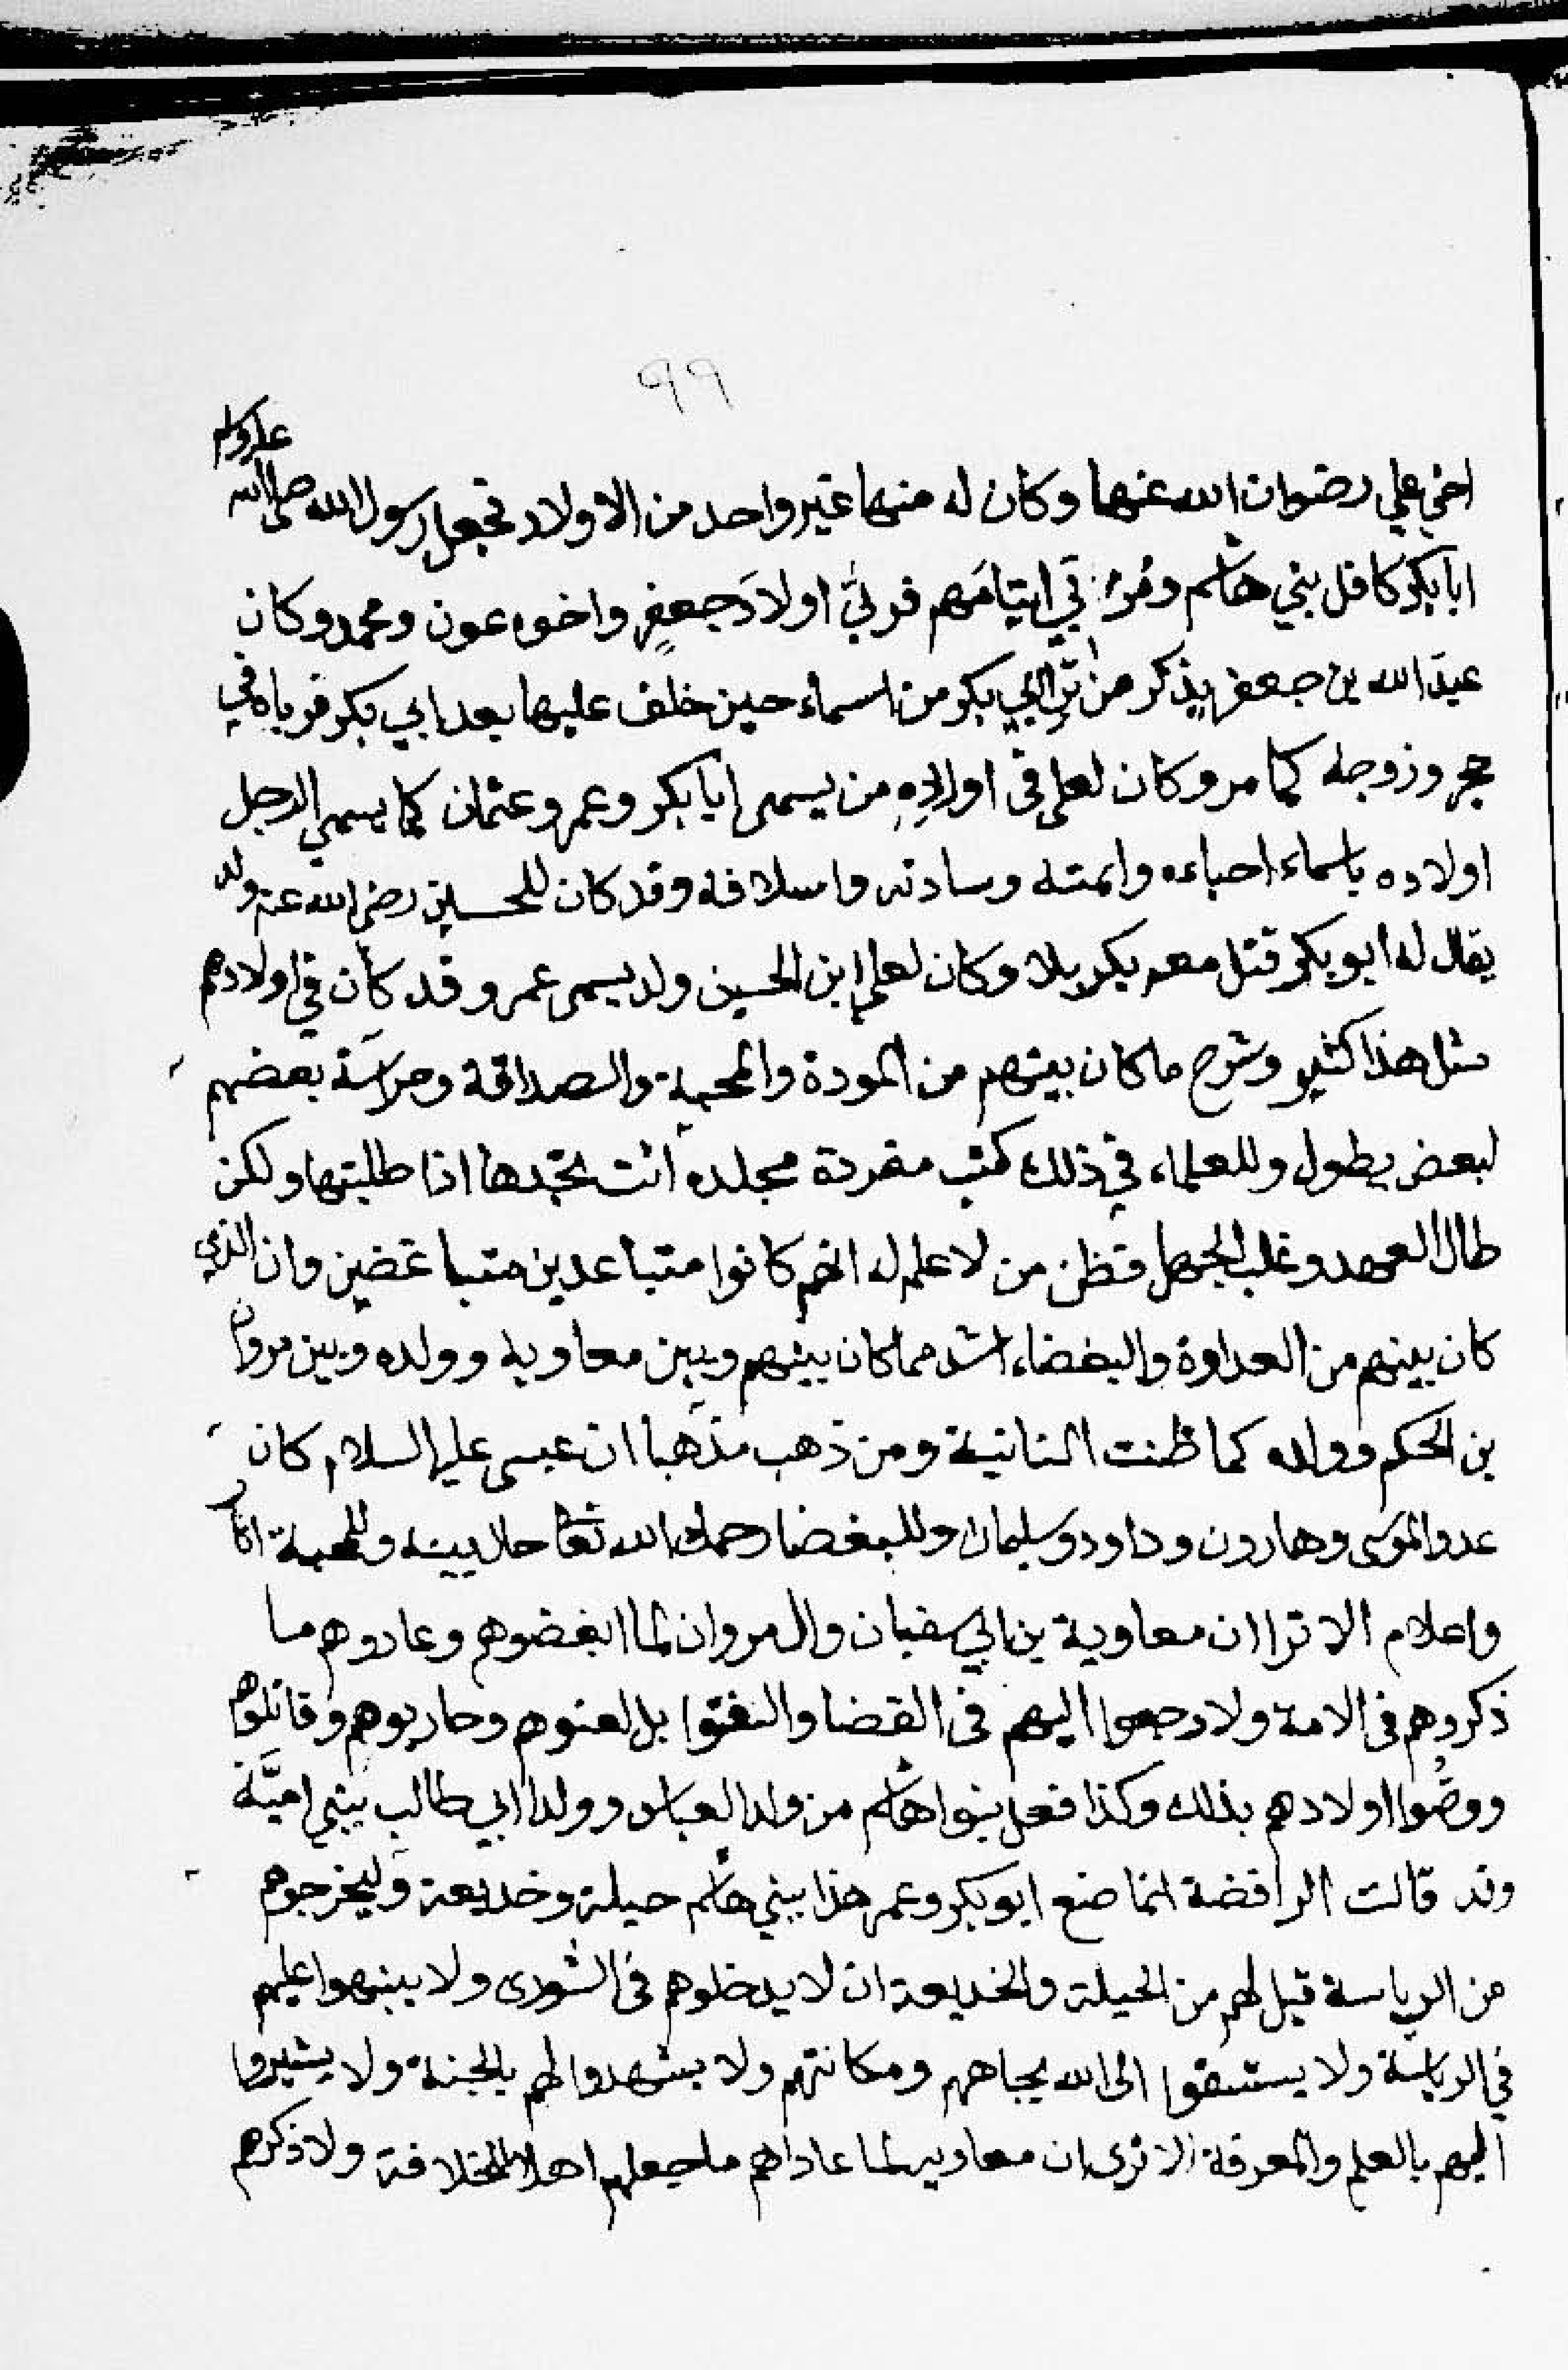 ٩٩
عليه وسلم
اخي علي رضوان الله عنهما وكان له منها غير واحد من الاولاد فجعل رسول الله صلى الله
ابا بكر كافل بني هاشم ومربي ايتامهم فربي اولاد جعفر واخوه عون ومحمد وكان
عبد الله بن جعفر يذكر من بر ابي بكر من اسماء حين خلف عليها بعد ابي بكر فرباه في
حجره وزوجه كما مر وكان لعلي في اولاده من يسمى ابا بكر وعمر وعثمان كما يسمي الرجل
اولاده باسماء احباءه وايمته وسادته واسلافه وقد كان للحسين رضي الله عنه ولد
يقال له ابو بكر قتل معه بكربلا وكان لعلي ابن الحسين ولد يسمى عمر وقد كان في اولادهم
مثل هذا كثير وشرح ما كان بينهم من المودة والمحبة والصداقة وحراسة بعضهم
لبعض يطول وللعلماء في ذلك كتب مفردة مجلده انت تجدها اذا طلبتها ولكن
طال العهد وغلب الجهل فظن من لا علم له انهم كانوا متباعدين متباغضين وان الذي
كان بينهم من العداوة والبغضاء اشد مما كان بينهم وبين معاوية وولده وبين مروان
بن الحكم وولده كما ظنت المنانية ومن ذهب مذهبها ان عيسى عليه السلام كان
عدوا لموسى وهارون وداود وسليمان وللبغضا رحمك الله تعا حال بينه وللمحبة اثار
واعلام الا ترا ان معاوية بن ابي سفيان وال مروان لما ابغضوهم وعادوهم ما
ذكروهم في الامة ولا رجعوا اليهم في القضا والفتوا بل لعنوهم وحاربوهم وقاتلوهم
ووصوا اولادهم بذلك وكذا فعل بنوا هاشم من ولد العباس وولد ابي طالب ببني امية
وقد قالت الرافضة انما صنع ابو بكر وعمر هذا ببني هاشم حيلة وخديعة وليخرجوهم
من الرياسة قيل لهم من الحيلة والخديعة ان لا يدخلوهم في الشورى ولا ينبهوا عليهم
في الرياسة ولا يستسقوا الى الله بجاههم ومكانتهم ولا يشهدوا لهم بالجنة ولا يشيروا
اليهم بالعلم والمعرفة الا ترى ان معاوية لما عاداهم ما جعلهم اهلا للخلافة ولا ذكرهم